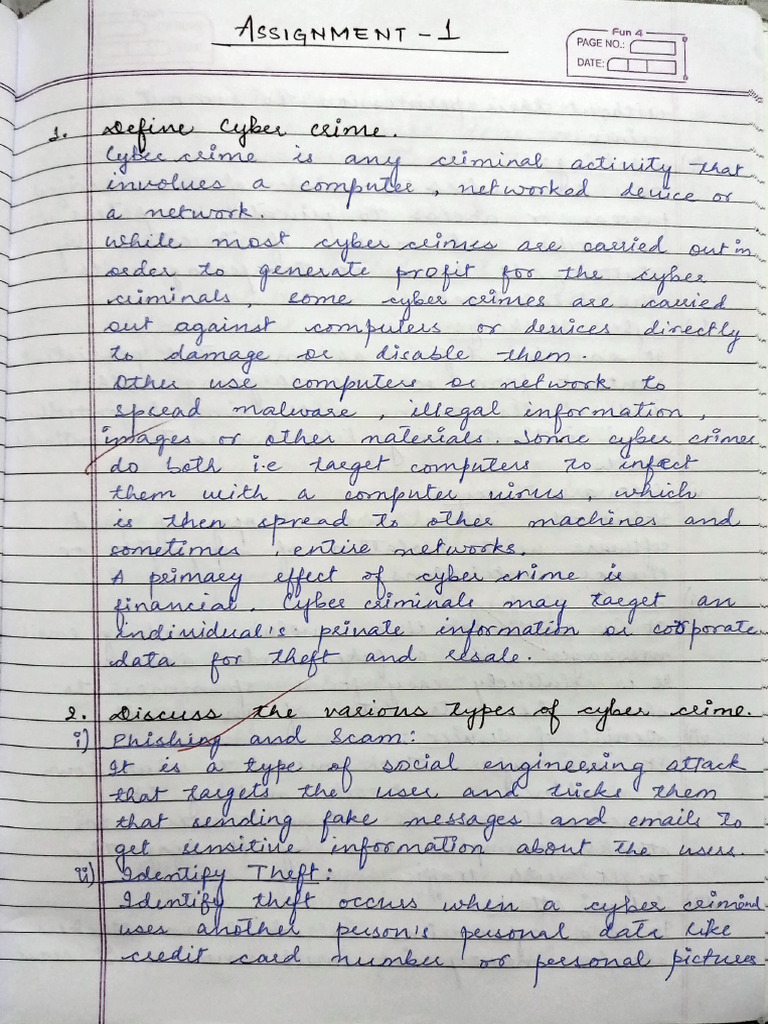 ASSIGNMENT - 1
Fun 4
PAGE NO.:
DATE:
1. Define Cyber crime.
Cyber crime is any criminal activity that
involves a computer, networked device or
a network.
While most cyber crimes are carried out in
order to generate profit for the cyber
criminals, some cyber crimes are carried
out against computers or devices directly
to damage or disable them.
Other use computers or network to
spread malware, illegal information,
images or other materials. Some cyber crimes
do both i.e target computers to infect
them with a computer virus, which
is then spread to other machines and
sometimes, entire networks.
A primary effect of cyber crime is
financial. Cyber criminals may target an
individual's private information or corporate
data for theft and resale.
2. Discuss the various types of cyber crime.
i) Phishing and Scam:
It is a type of social engineering attack
that targets the user and tricks them
that sending fake messages and emails to
get sensitive information about the users.
ii) Identify Theft:
Identify theft occurs when a cyber criminal
uses another person's personal data like
credit card number or personal pictures